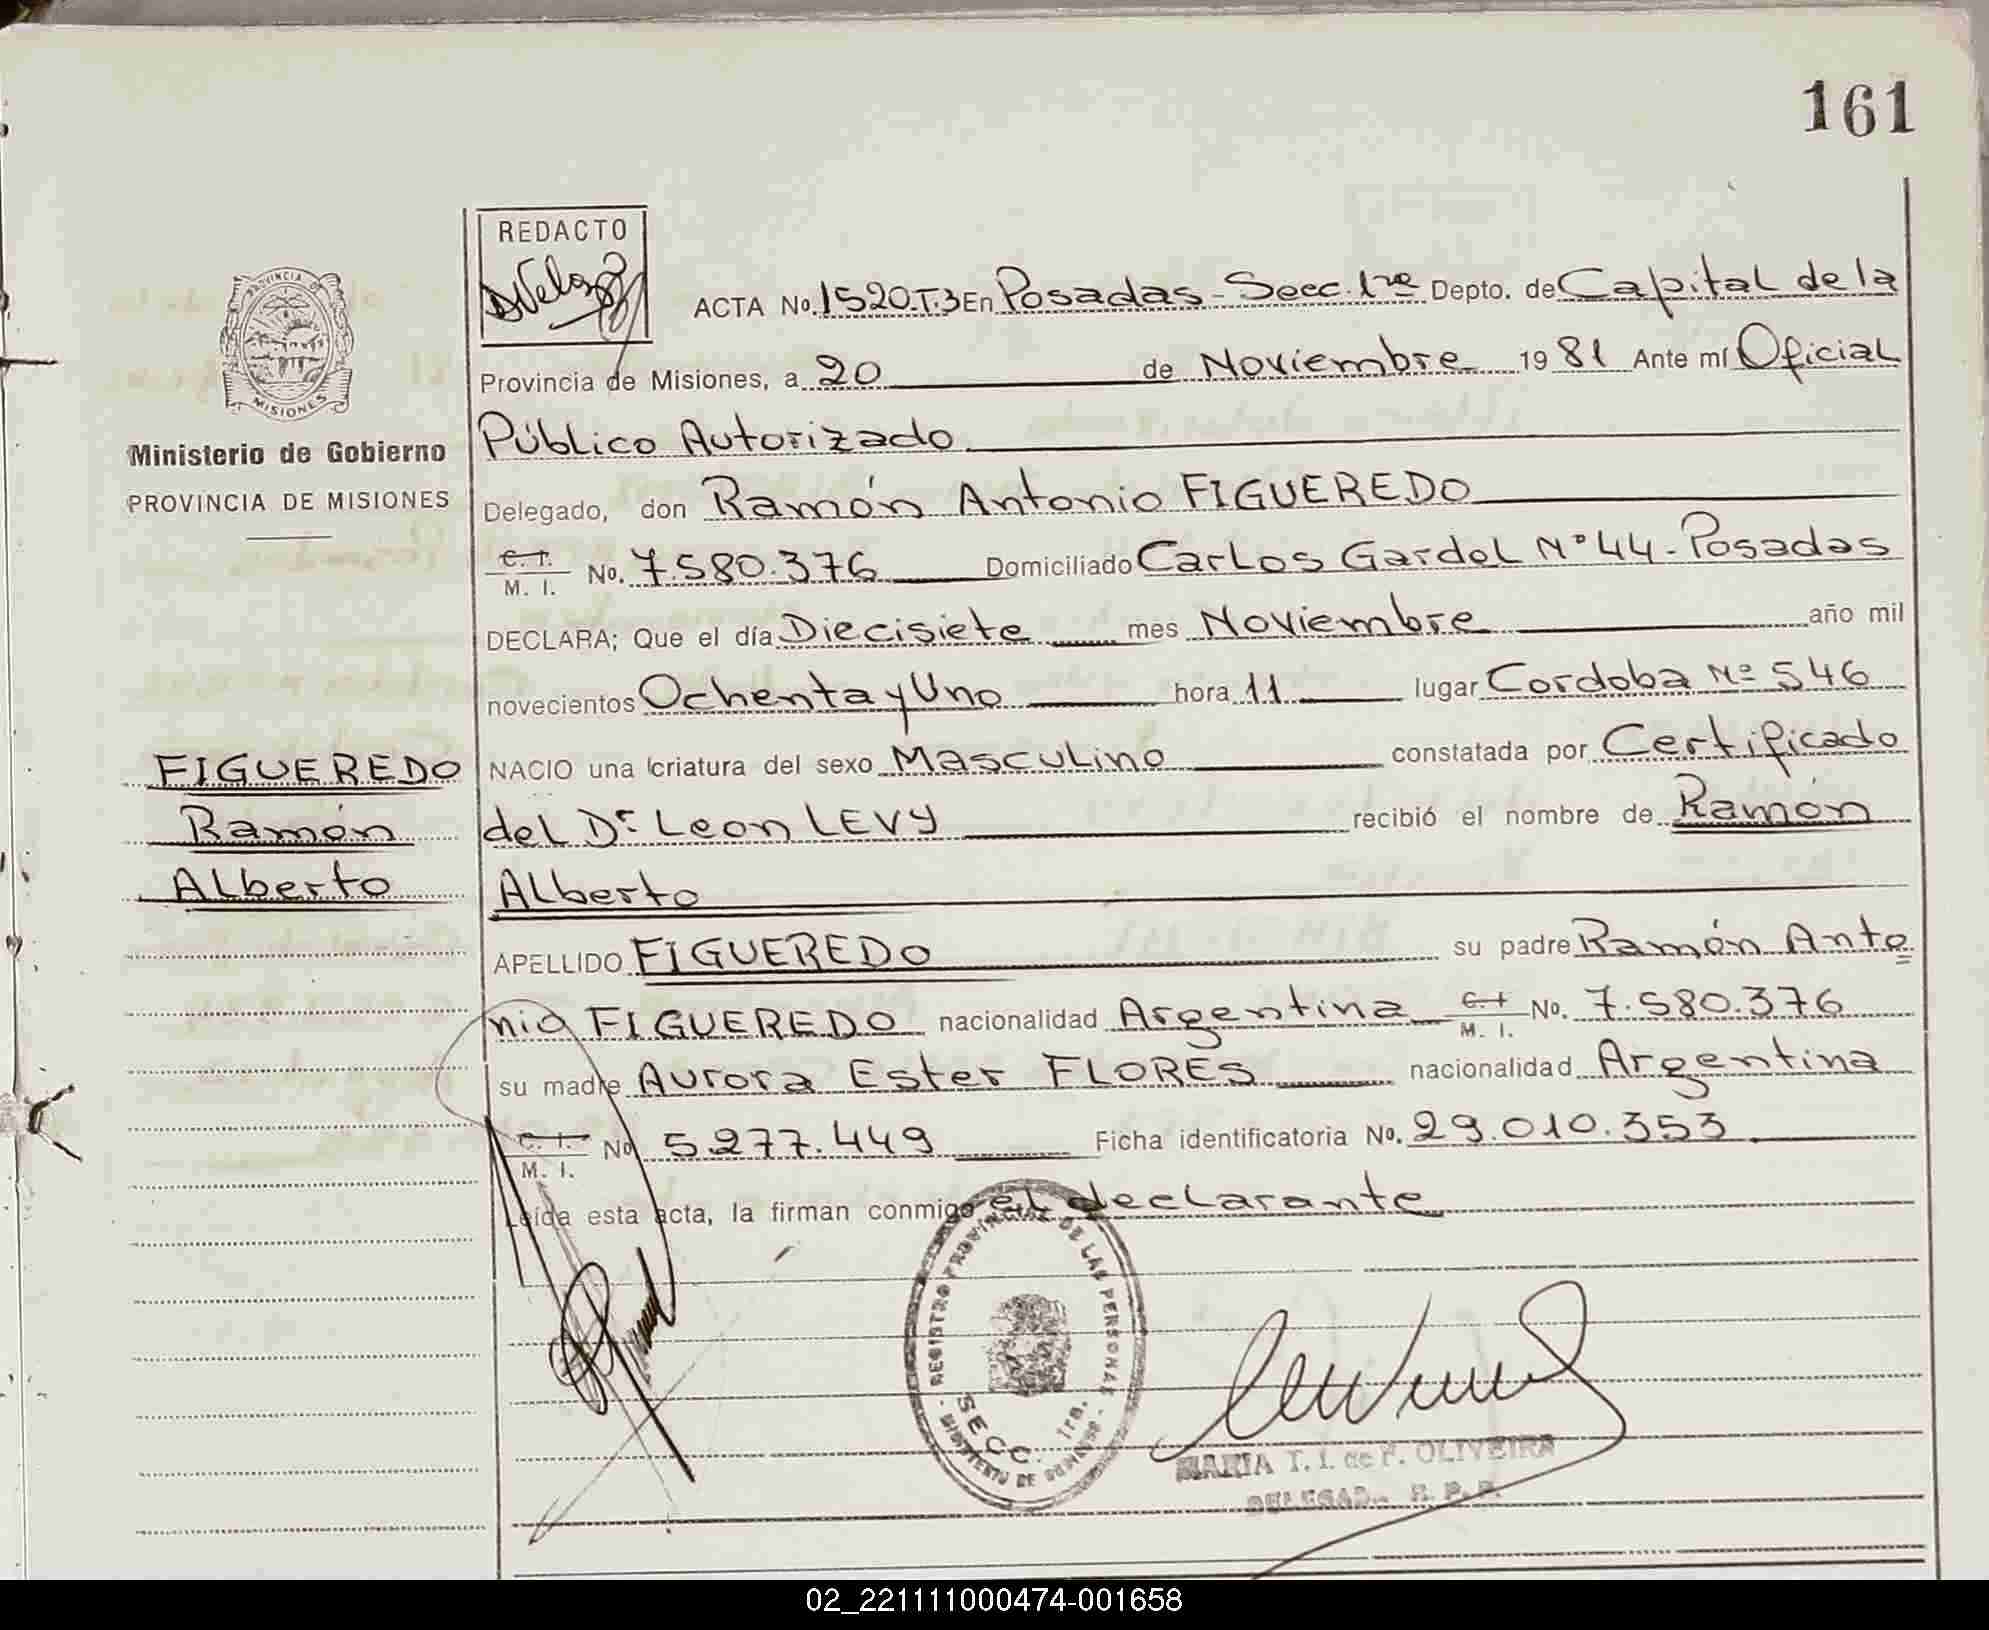 161
REDACTO
ACTA No. 1520.T.3 En Posadas - Secc. 1ra Depto. de Capital de la
Provincia de Misiones, a 20 de Noviembre 1981 Ante mí Oficial
Público Autorizado
Delegado, don Ramón Antonio FIGUEREDO
C. I. M. I. No. 7.580.376 Domiciliado Carlos Gardel N° 44 - Posadas
DECLARA; Que el día Diecisiete mes Noviembre año mil
novecientos Ochenta y Uno hora 11 lugar Cordoba Nº 546
NACIO una criatura del sexo Masculino constatada por Certificado
del Dr. Leon LEVY recibió el nombre de Ramón
Alberto
APELLIDO FIGUEREDO su padre Ramón Anto
nio FIGUEREDO nacionalidad Argentina C. I. M. I. No. 7.580.376
su madre Aurora Ester FLORES nacionalidad Argentina
C. I. M. I. No 5.277.449 Ficha identificatoria No. 29.010.353
Leída esta acta, la firman conmigo el declarante
PROVINCIA DE
MISIONES
Ministerio de Gobierno
PROVINCIA DE MISIONES
FIGUEREDO
Ramón
Alberto
REGISTRO PROVINCIAL DE LAS PERSONAS
SECC. 1ra.
MINISTERIO DE GOBIERNO
MARIA T. I. de F. OLIVEIRA
DELEGADA R. P. P.
02_221111000474-001658